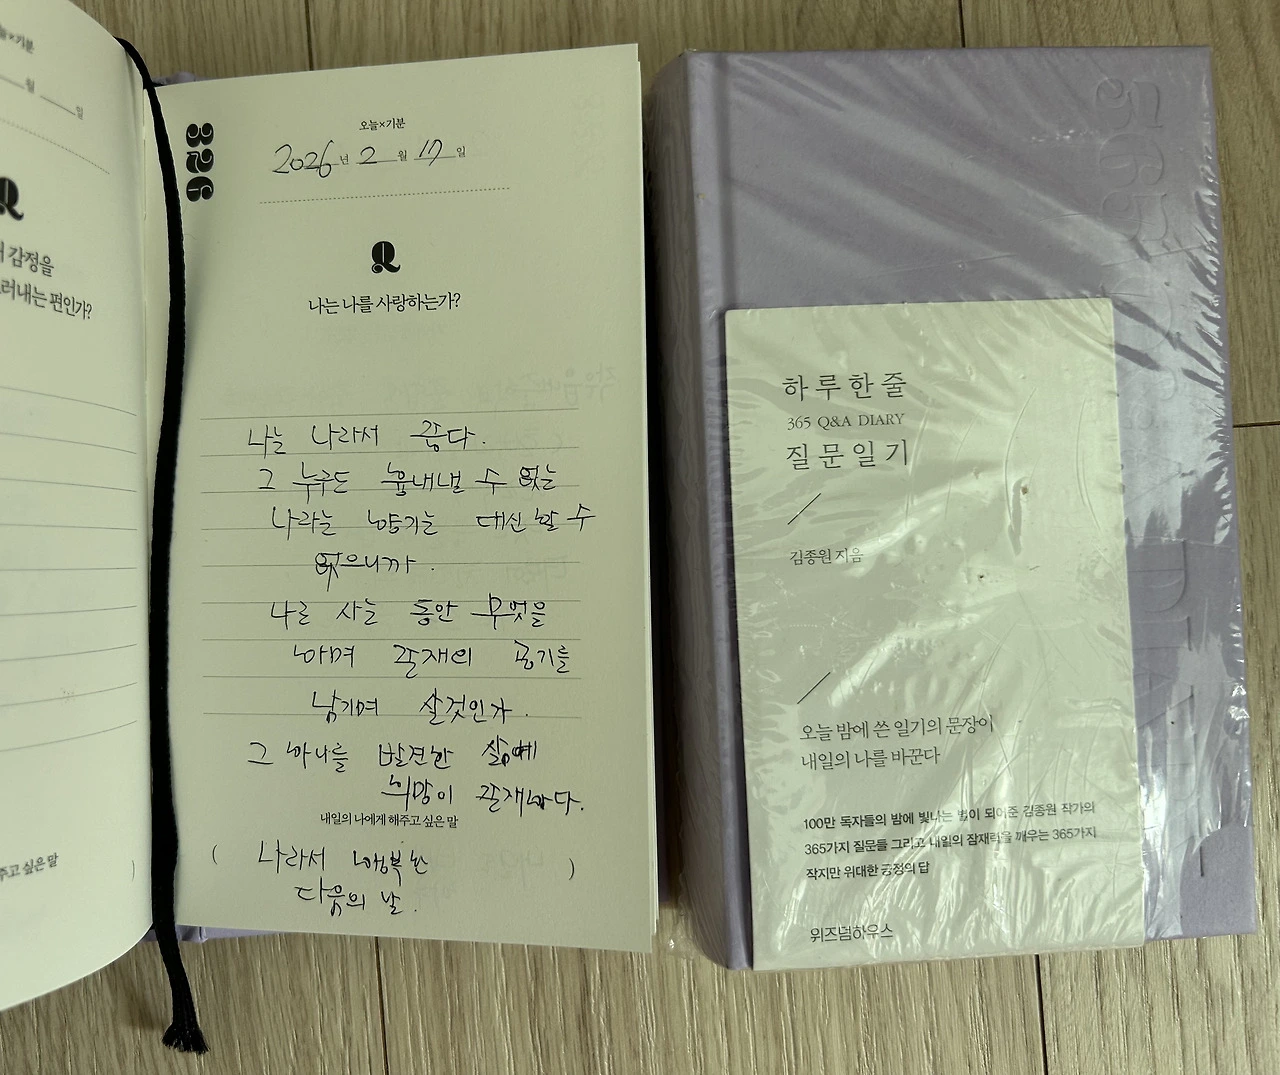 늘×기분
월 일
Q
감정을
러내는 편인가?
주고 싶은 말
)
326
오늘×기분
2026년 2월 17일
Q
나는 나를 사랑하는가?
나는 나라서 좋다.
그 누구도 흉내낼 수 없는
나라는 향기는 대신 할 수
없으니까.
나로 사는 동안 무엇을
하며 존재의 공기를
남기며 살것인가.
그 하나를 발견한 삶에
희망이 존재하다.
내일의 나에게 해주고 싶은 말
( 나라서 행복한 )
다음의 날.
365
DIA
하루한줄
365 Q&A DIARY
질문일기
김종원 지음
오늘 밤에 쓴 일기의 문장이
내일의 나를 바꾼다
100만 독자들의 밤에 빛나는 별이 되어준 김종원 작가의
365가지 질문들 그리고 내일의 잠재력을 깨우는 365가지
작지만 위대한 긍정의 답
위즈덤하우스